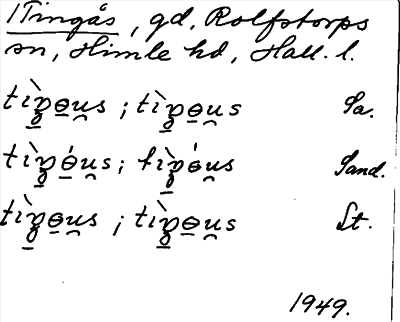 1Tingås, gd, Rolfstorps
sn, Himle hd, Hall. l.
tìŋ̱ɵ̱u̯s ; tìŋ̱ɵ̱u̯s Sa.
tìŋ̱ɵ̱́u̯s ; tìŋ̱ɵ́u̯s Sand.
tìŋ̱ɵ̱u̯s ; tìŋ̱ɵ̱u̯s Lt.
1949.